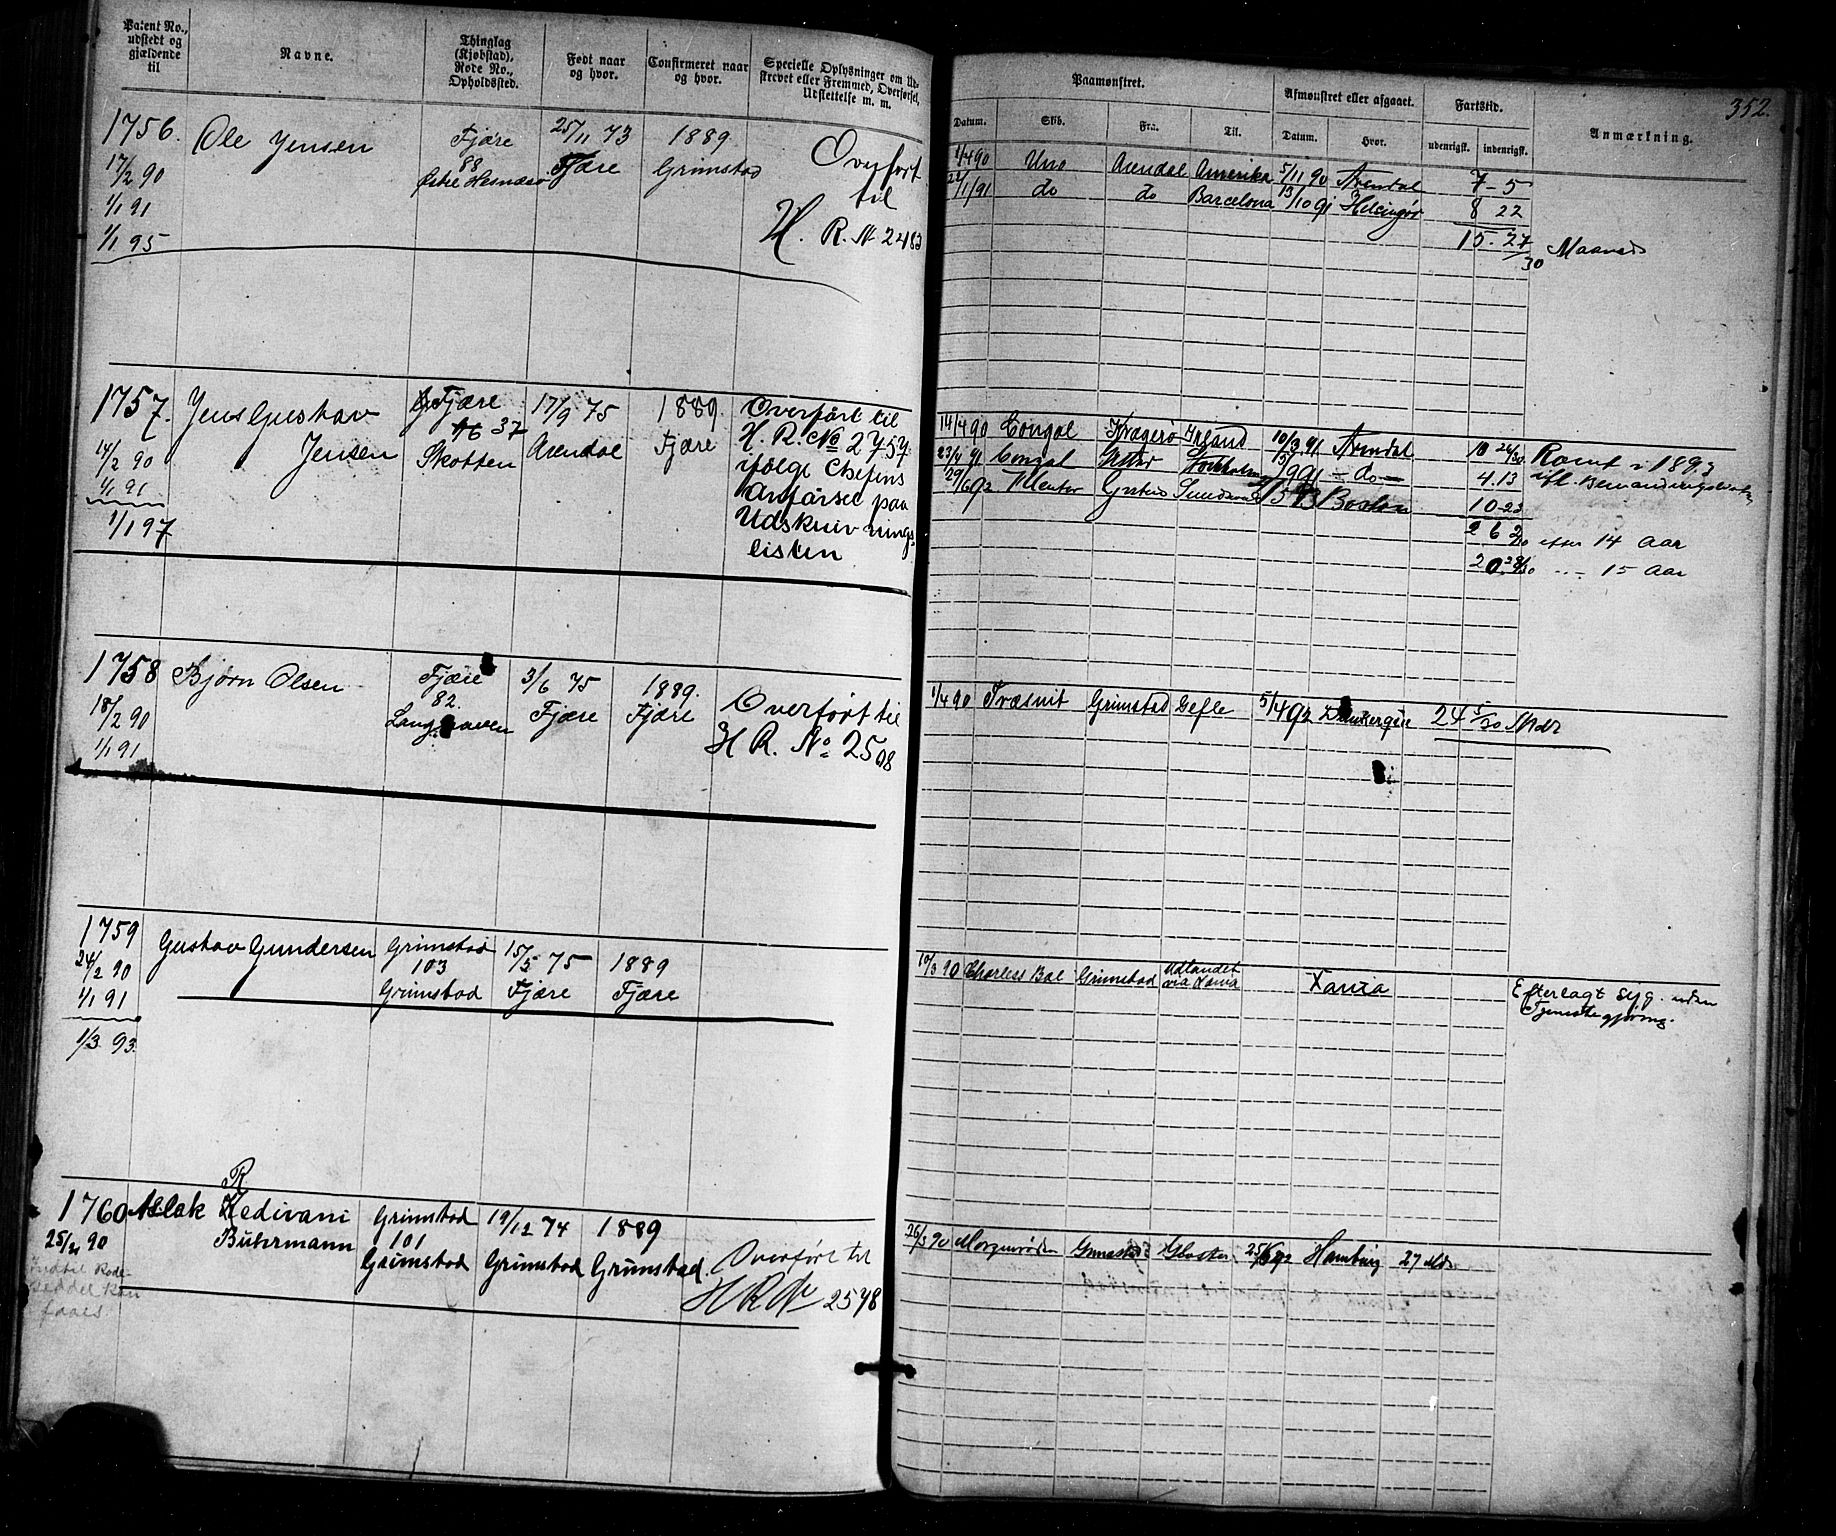 Patent No., udstedt og gjældende til
Navne.
Thinglag (Kjøbstad), Rode No., Opholdssted.
Født naar og hvor.
Confirmeret naar og hvor.
Specielle Oplysninger om Udskrevet eller Fremmed, Overførsel, Udslettelse m. m.
Paamønstret.
Datum. Skib. Fra. Til.
Afmønstret eller afgaaet.
Datum. Hvor.
Fartstid.
udenrigsk. indenrigsk.
Anmærkning.
352.
1756. Ole Jensen Fjære 25/11 73 1889
17/2 90 88 Fjære Grimstad
1/1 91 Østre Hesnæsø
1/1 95
Overført
til
H. R. № 2483
1/4 90 Uno Arendal Amerika 5/11 90 Arendal 7-5
22/1 91 do do Barcelona 13/10 91 Helsingør 8 22
15. 27/30 Maaned
1757. Jens Gustav Fjære 17/9 75 1889
14/2 90 Jensen 37 Arendal Fjære
1/1 91 Skotten
1/1 97
Overført til
H. R. No 2757
ifølge Chefens
Anførsel paa
Udskrivnings-
listen
14/4 90 Congal Kragerø Irland 10/3 91 Arendal 10 26/30
23/4 91 Congal Stockholm 91 do 4.13
29/6 92 Mentor 93 Boston 10-23
Rømt i 1893
ifl.
26 2/30 efter 14 Aar
20 28/30 -..- 15 Aar
1758 Bjørn Olsen Fjære 3/6 75 1889.
18/2 90 82. Fjære Fjære
1/1 91 Langhaven
Overført til
H R. No 2508
1/4 90 Træsnit Grimstad Gefle 5/4 92 24 5/30 Mdr
1759 Gustav Gundersen Grimstad 15/5 75 1889
24/2 90 103 Fjære Fjære
1/1 91 Grimstad
1/3 93.
10/3 90 Charles Bal Grimstad Udlandet
via Xania Xania
Efterlagt syg. uden
Tjenestegjøring.
R
1760 Aslak Kedivani Grimstad 19/12 74 1889
25/2 90 Buhrmann 101 Grimstad Grimstad
Grimstad
indtil Rode-
seddel kan
faaes
Overført til
H R № 2578
26/3 90 Morgenrøden Grimstad 25/6 92 Hamburg 27 Md.